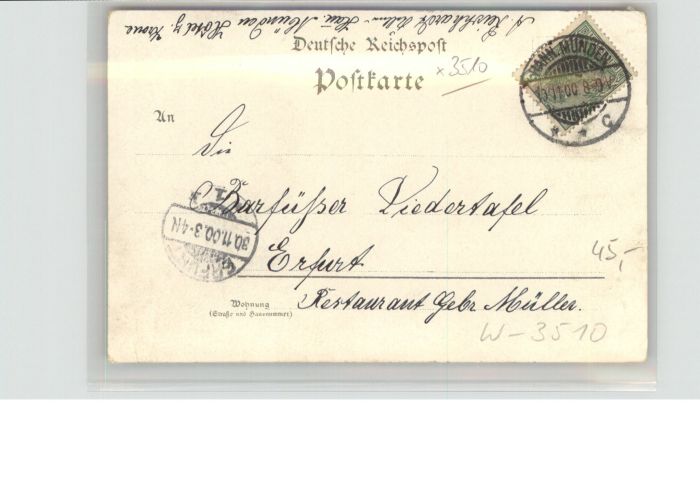 Hann. Münden Hotel z. Krone
Deutsche Reichspost
Postkarte
x 3510
HANN. MÜNDEN
00 8-9
* * c
An
Die
Barfüßer Liedertafel
30.11.00.3-4N
Erfurt
45,-
Wohnung
(Straße und Hausnummer)
Restaurant Gebr Müller.
W-3510